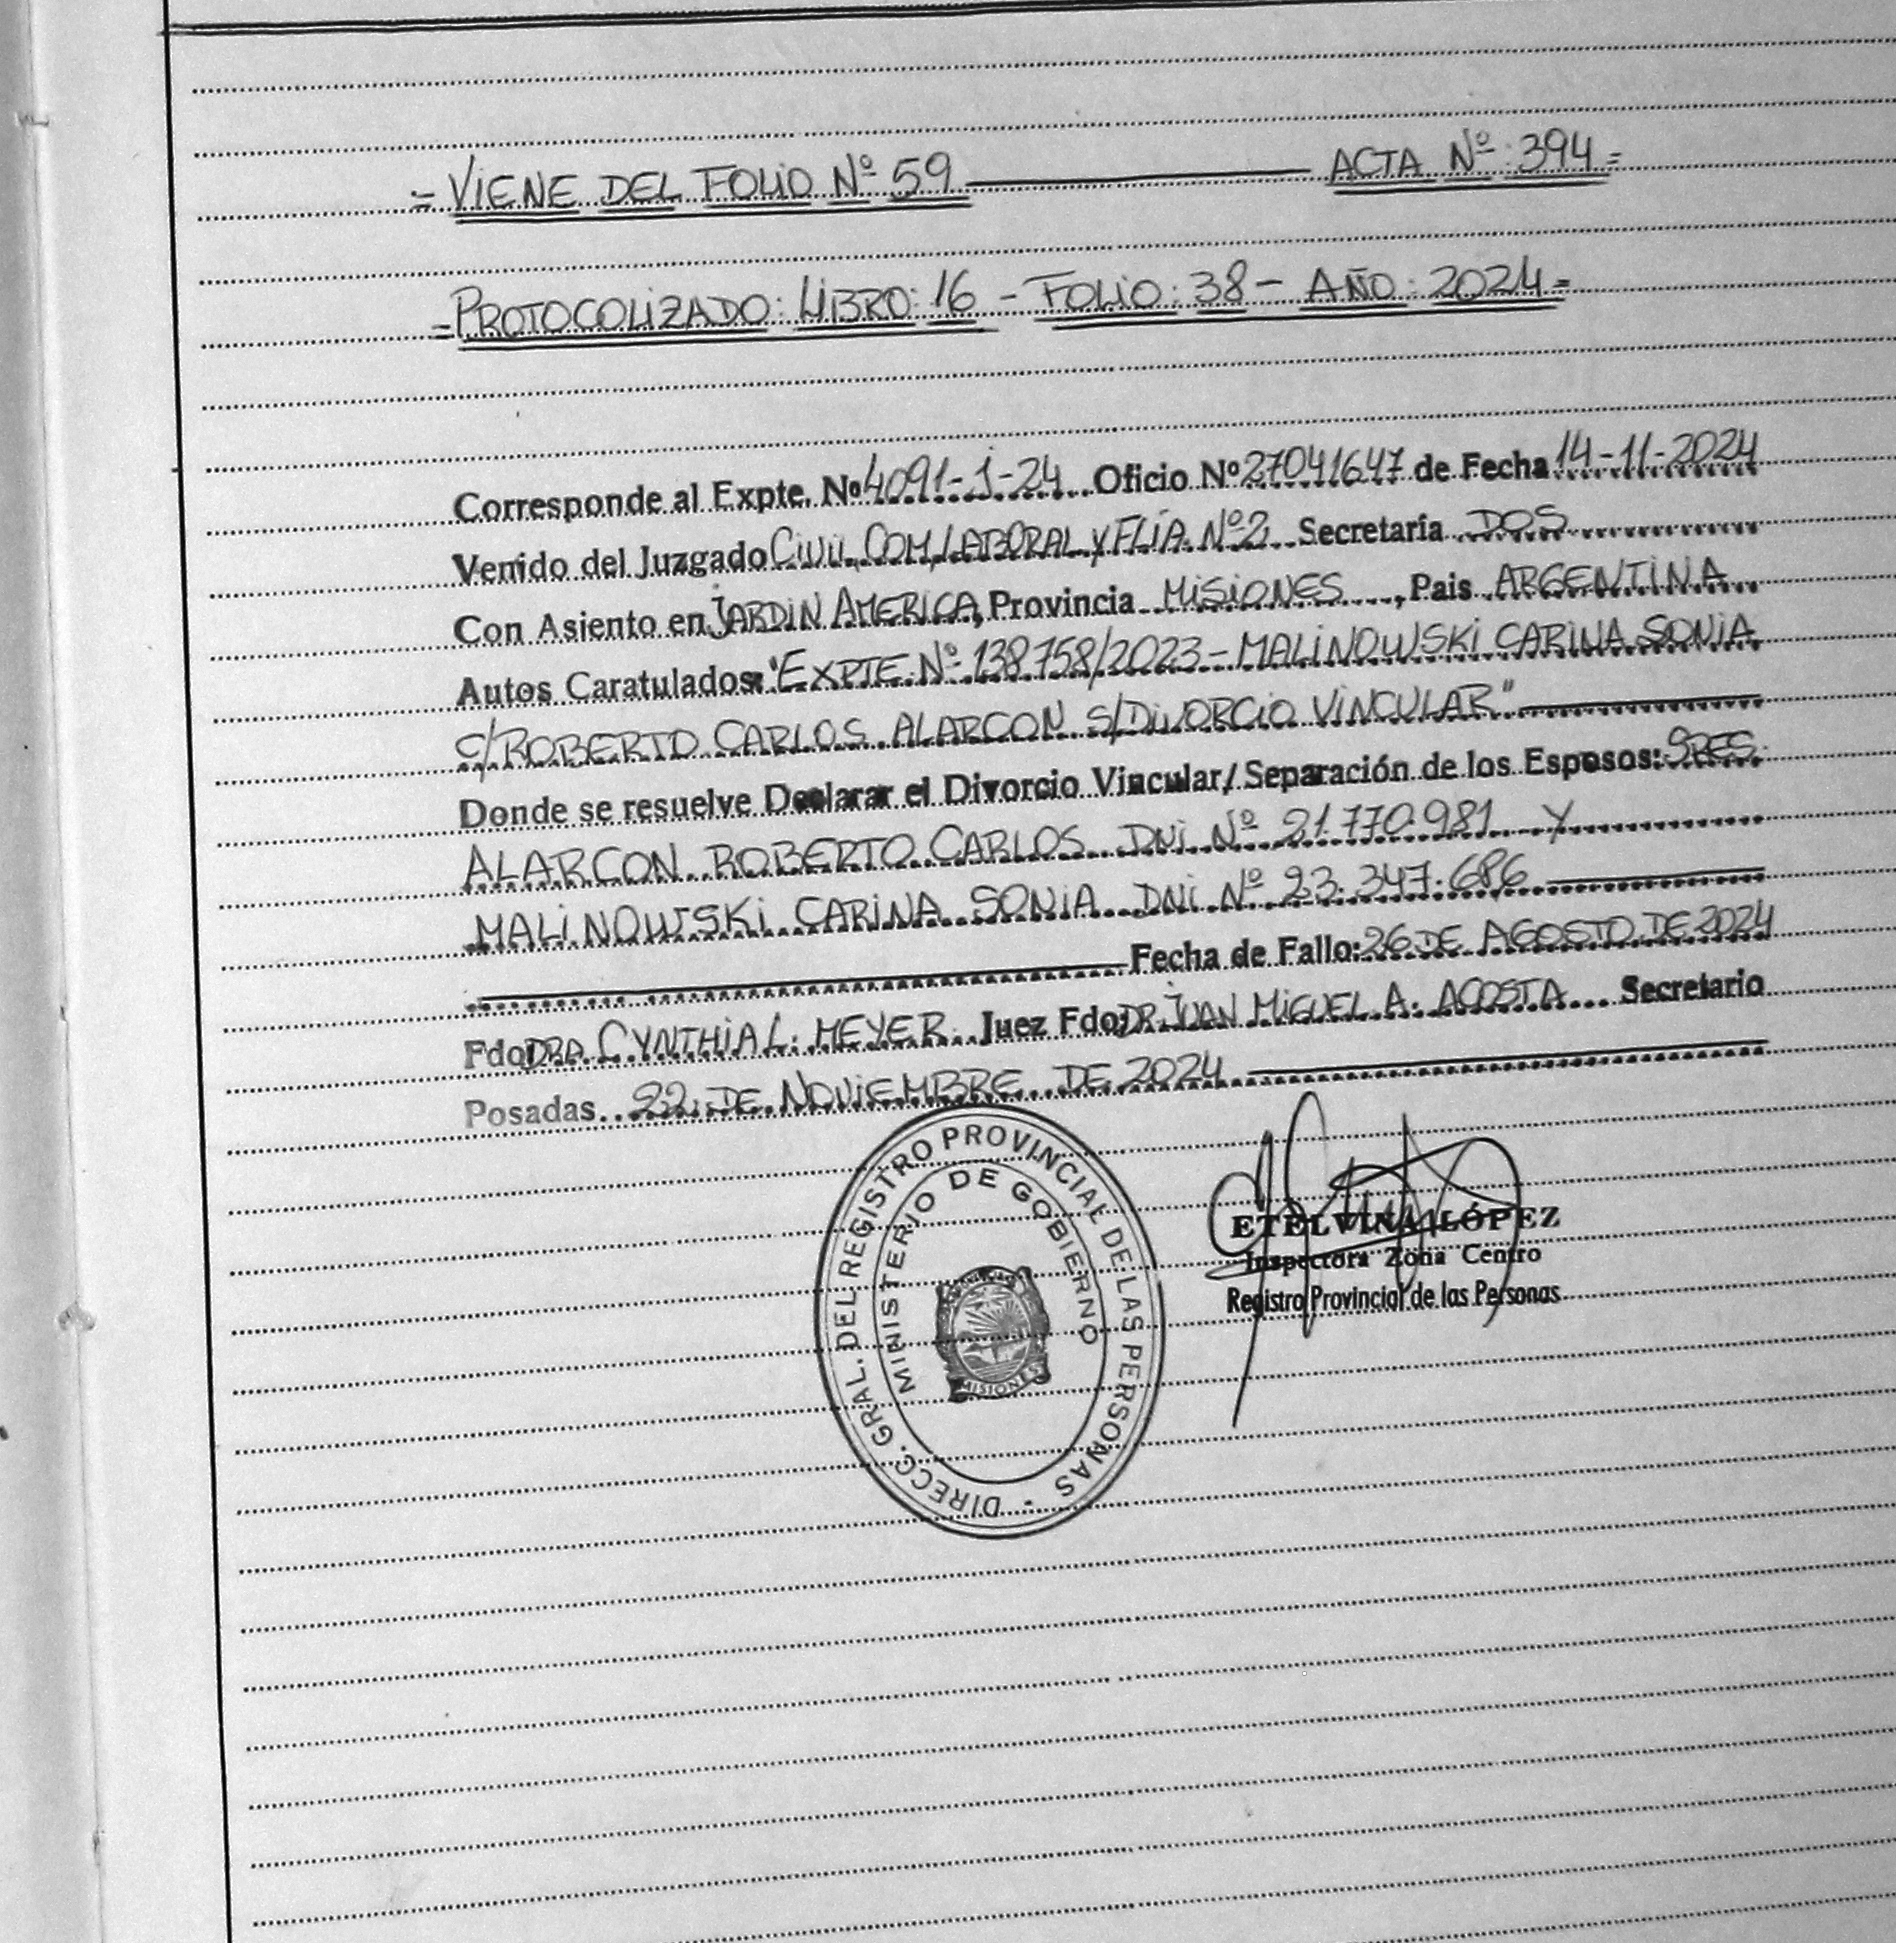 = VIENE DEL FOLIO Nº 59 ———— ACTA Nº: 394 =
= PROTOCOLIZADO: LIBRO: 16 - FOLIO: 38 - AÑO: 2024 =
Corresponde al Expte. Nº 4091-J-24 Oficio Nº 27041647 de Fecha 14-11-2024
Venido del Juzgado CIVIL, COM, LABORAL Y FLIA. Nº 2 Secretaría DOS
Con Asiento en JARDIN AMERICA, Provincia MISIONES, Pais ARGENTINA
Autos Caratulados: "EXPTE Nº 138758/2023 - MALINOWSKI CARINA SONIA
C/ ROBERTO CARLOS ALARCON S/ DIVORCIO VINCULAR"
Donde se resuelve Declarar el Divorcio Vincular/Separación de los Esposos: SRES.
ALARCON ROBERTO CARLOS DNI Nº 21.770.981 Y
MALINOWSKI CARINA SONIA DNI Nº 23.347.686
Fecha de Fallo: 26 DE AGOSTO DE 2024
Fdo: DRA. CYNTHIA L. MEYER Juez Fdo: DR JUAN MIGUEL A. ACOSTA Secretario
Posadas 22 DE NOVIEMBRE DE 2024
DIRECC. GRAL. DEL REGISTRO PROVINCIAL DE LAS PERSONAS -
MINISTERIO DE GOBIERNO
MISIONES
ETELVINA LÓPEZ
Inspectora Zona Centro
Registro Provincial de las Personas